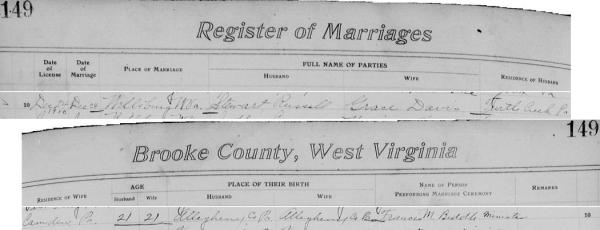 149
Register of Marriages
Date of License
Date of Marriage
PLACE OF MARRIAGE
FULL NAME OF PARTIES
HUSBAND
WIFE
RESIDENCE OF HUSBAND
10 Dec 20 1910 Dec 20 Wellsburg W.Va. Stewart Russell Grace Davis Turtle Creek Pa
149
Brooke County, West Virginia
RESIDENCE OF WIFE
AGE
Husband
Wife
PLACE OF THEIR BIRTH
HUSBAND
WIFE
NAME OF PERSON PERFORMING MARRIAGE CEREMONY
REMARKS
Pa. 21 21 Allegheny Co Pa. Allegheny Co Pa Francis M. Minister 10